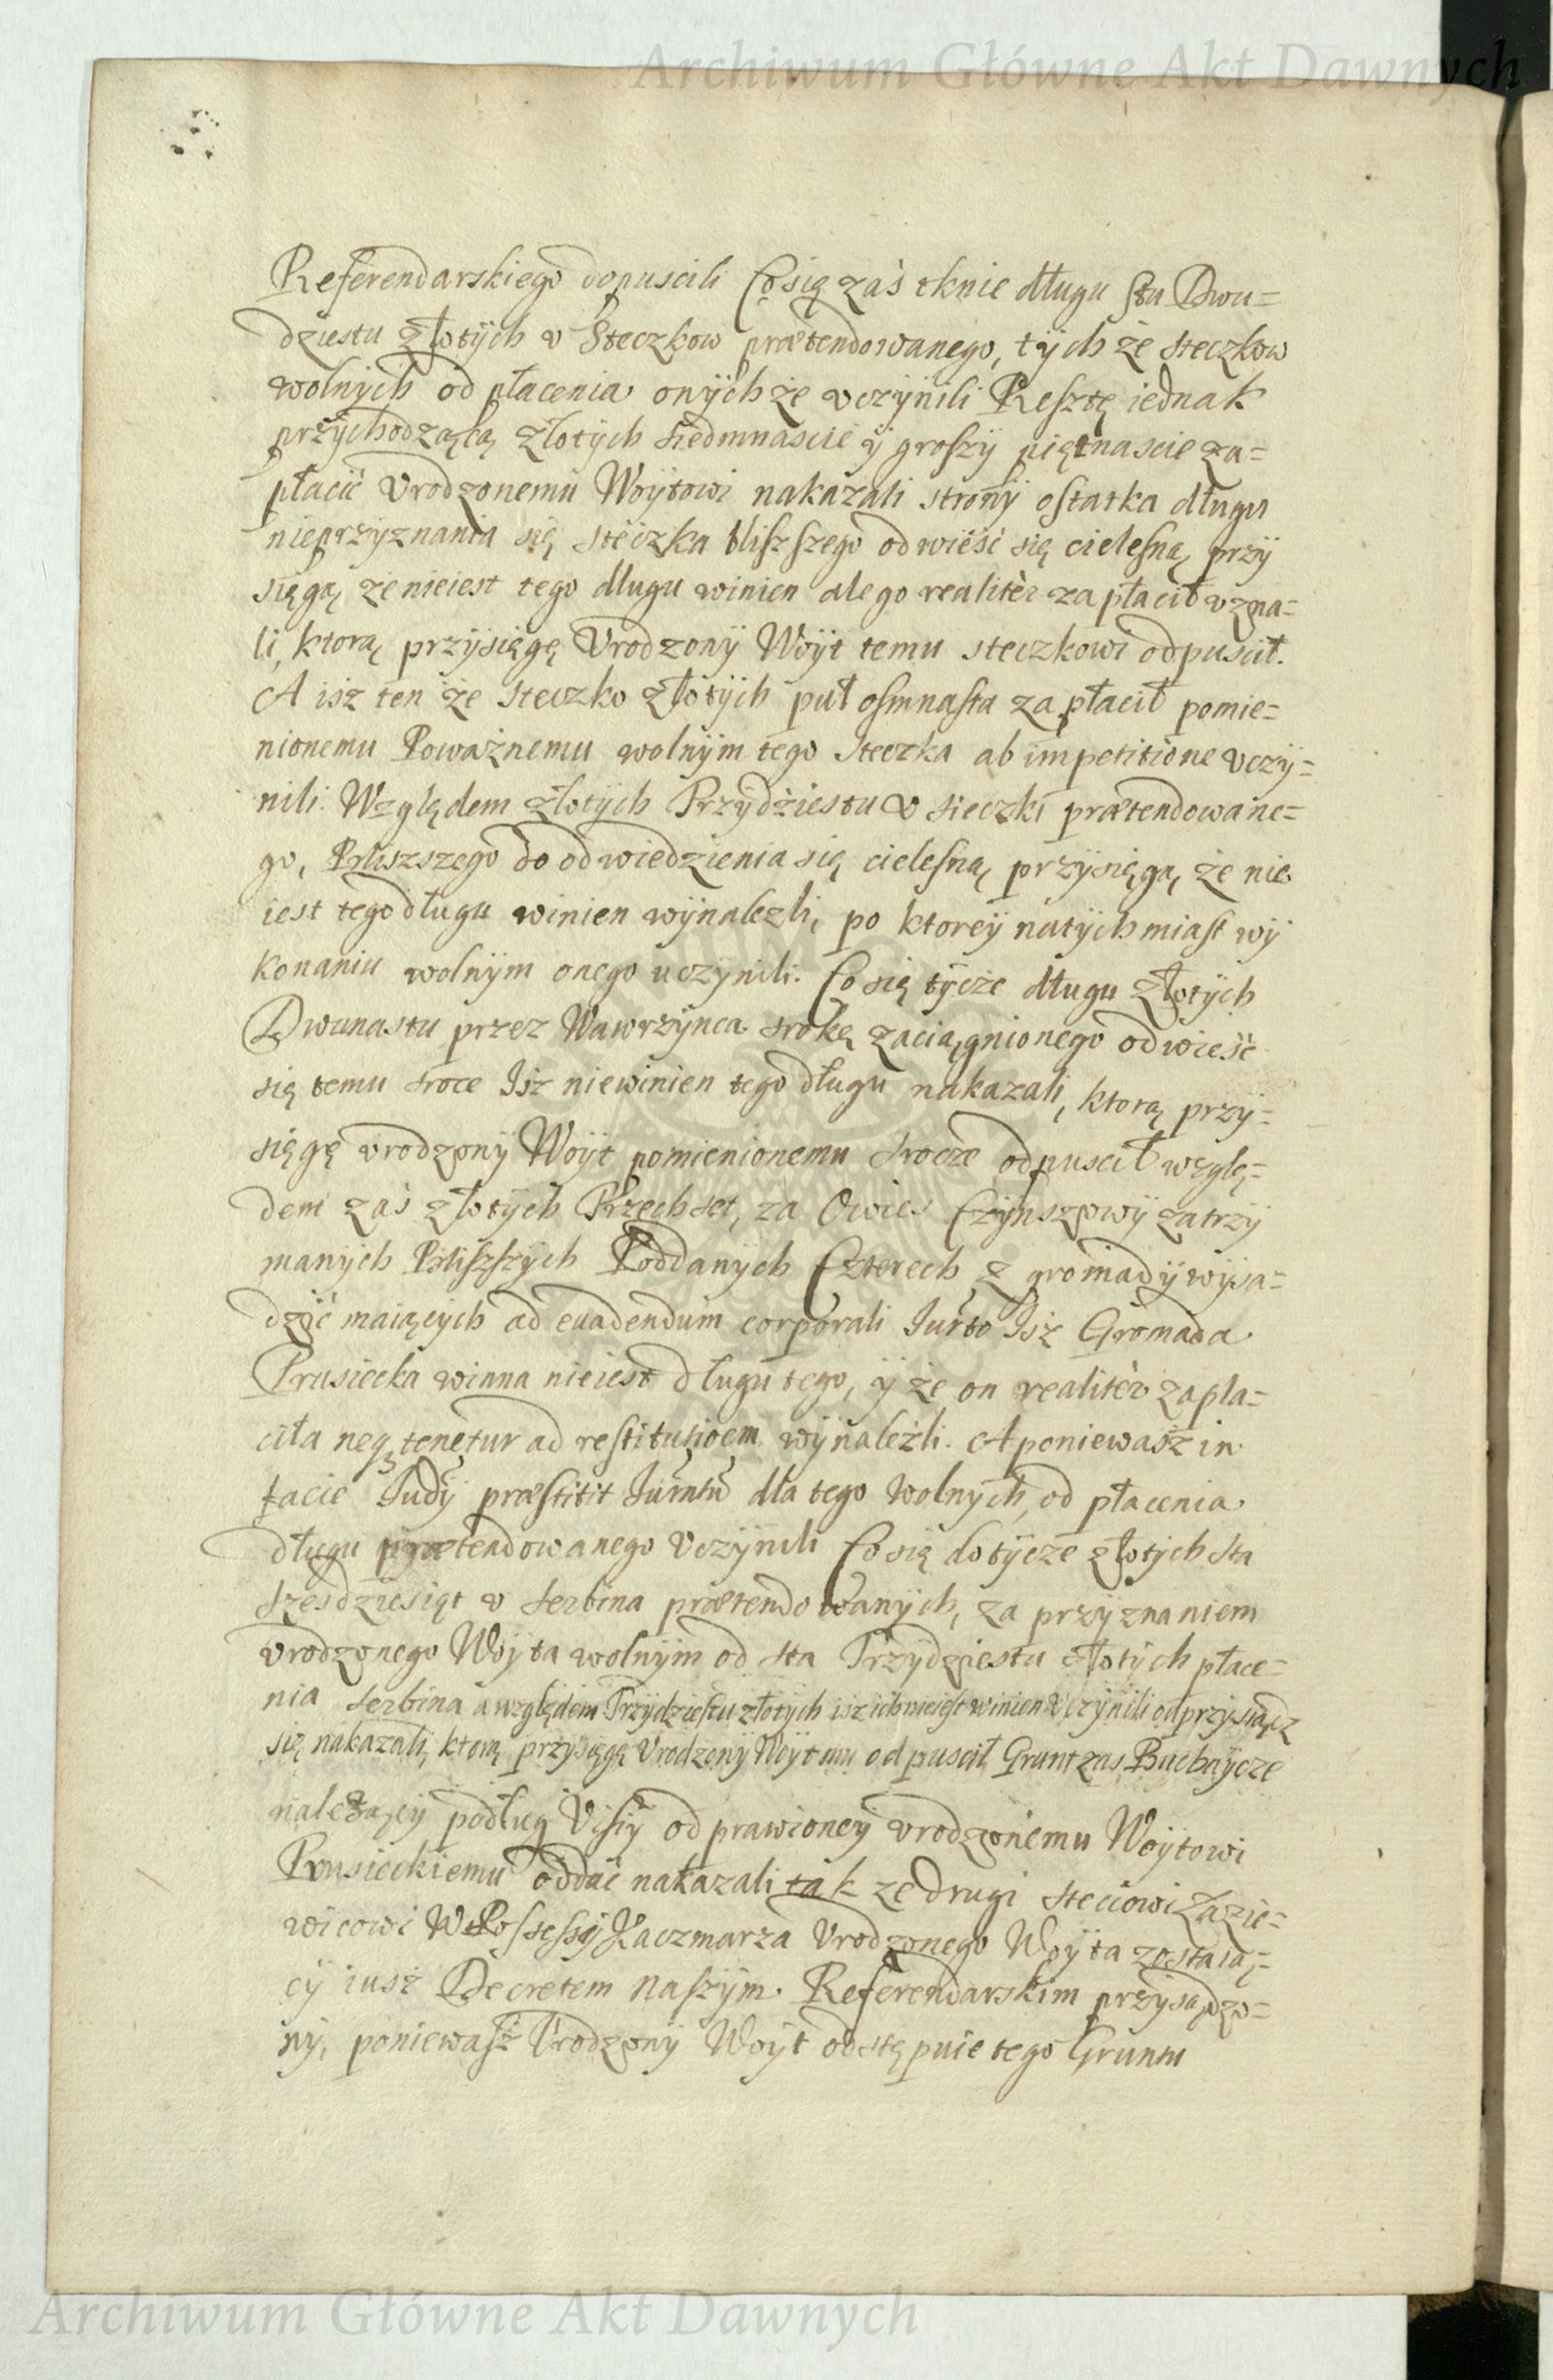 Archiwum Główne Akt Dawnych
Referendarskiego dopuscili Co się zaś tknie długu sta Dwu=
dziestu złotÿch v Steczkow prætendowanego, tÿch że Steczkow
wolnÿch od płacenia onÿchże vczÿnili Resztę iednak
przÿchodzącą złotÿch siedmnascie ÿ groszÿ piętnascie za=
płacić Vrodzonemu Woÿtowi nakazali stronÿ ostatka długu
nieprzÿznania się Steczka bliszszego odwieść się cielesną przÿ
sięgą że nieiest tego dlugu winien ale go realitèr zapłacił vzna=
li, ktorą przÿsięgę Vrodzonÿ Woÿt temu Steczkowi odpuscił.
A isz ten że Steczko złotÿch puł osmnasta zapłacił pomie=
nionemu Poważnemu wolnÿm tego Steczka ab impetitione vczÿ=
nili. Względem złotÿch Trzÿdziestu v Sieczki prætendowane=
go, Bliszszego do odwiedzienia się cielesną przÿsięgą, że nie
iest tego długu winien wÿnalezli, po ktoreÿ natÿchmiast wÿ
konaniu wolnÿm onego uczÿnili. Co się tÿcze długu złotÿch
Dwunastu przez Wawrzÿnca Srokę zaciągnionego odwieść
się temu Sroce Isz niewinien tego długu nakazali, ktorą przÿ=
sięgę vrodzonÿ Woÿt pomienionemu Srocze odpuscił wzglę=
dem zaś złotÿch Trzechset, za Owies Czÿnszowÿ zatrzÿ
manÿch Bliszszÿch Poddanÿch Czterech z gromadÿ wÿsa=
dzić maiącÿch ad euadendum corporali Iurto Isz Gromada
Prusiecka winna nieiest długu tego, ÿ że on realitèr zapla=
ciła neqꝫ tenetur ad restitutioem wÿnaleźli. A poniewasz in
facie Iudÿ præstitit Iurmtũ dla tego wolnÿch, od płacenia
długu prætendowanego Vczÿnili Co się dotÿcze złotÿch sta
szesdziesiąt v Serbina prætendowanÿch, za przÿznaniem
vrodzonego Woÿta wolnÿm od sta Trzÿdziestu złotÿch płace=
nia Serbina a względem Trzÿdziestu złotÿch isz ich nieiest winien Vczÿnili odprzysiądz
się nakazali, ktorą przÿsięgę Vrodzonÿ Woÿt mu odpuscił Grunt zas Buchaÿcze
należącÿ podług Visiÿ odprawioneÿ vrodzonemu Woÿtowi
Prusieckiemu oddać nakazali tak ze drugi Steciowi Zazie=
wicowi W Possessÿ Kaczmarza Vrodzonego Woÿta zostaią=
cÿ iusz Decretem Naszÿm Referendarskim przÿsądzo=
nÿ, poniewasz Vrodzonÿ Woÿt odstępuie tego Gruntu
Archiwum Główne Akt Dawnych